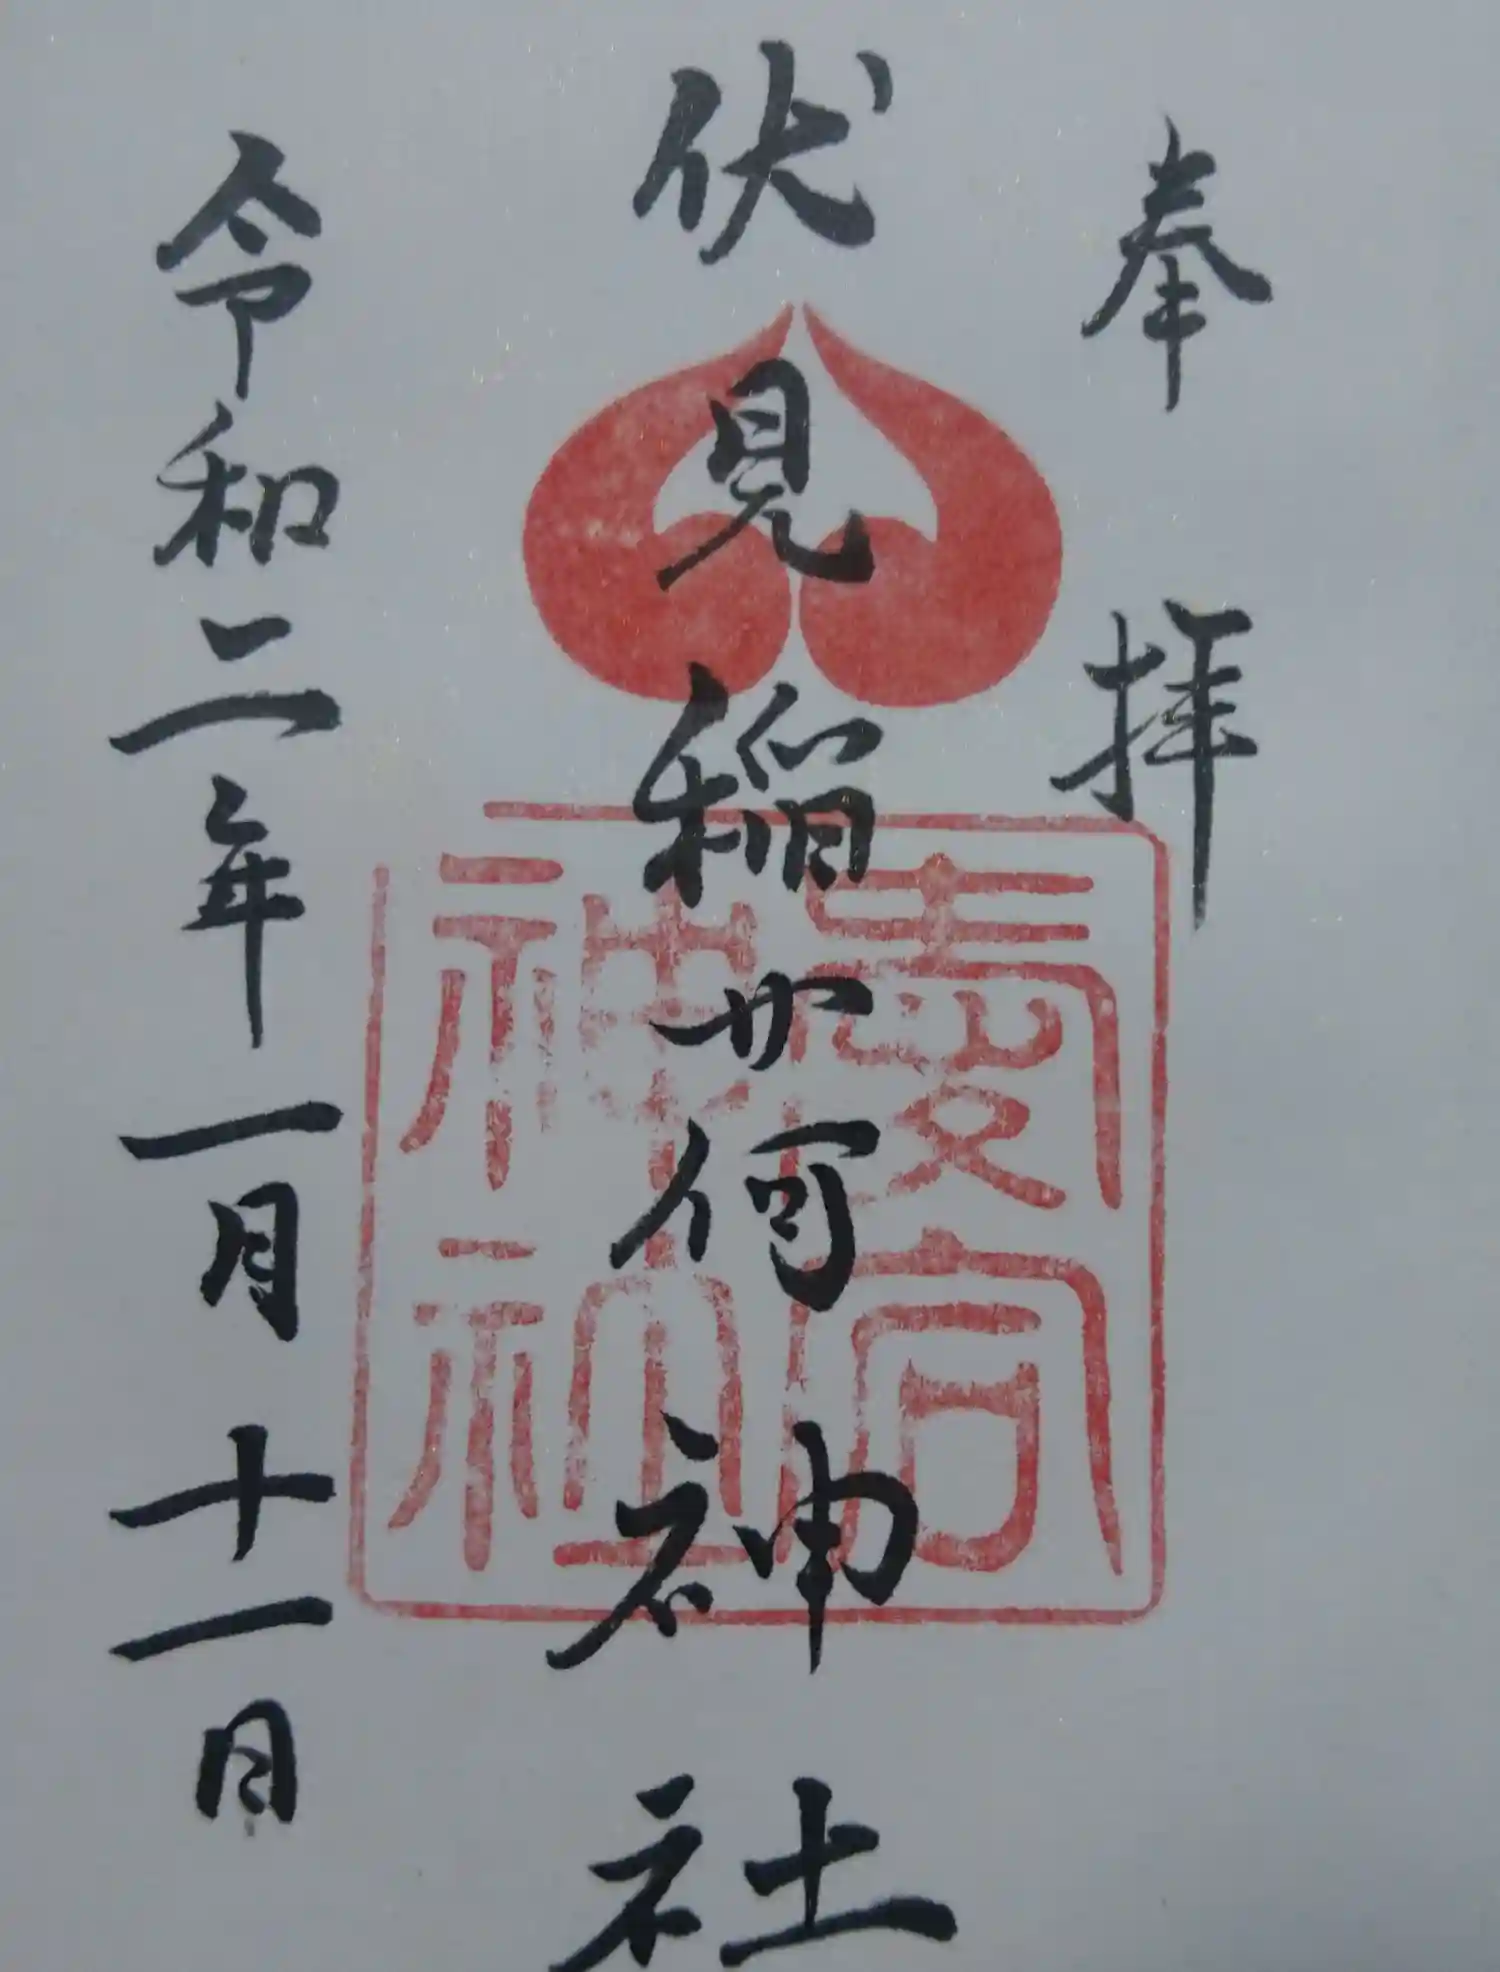 奉拝
伏見稲荷神社
令和二年一月十一日
愛宕
神社